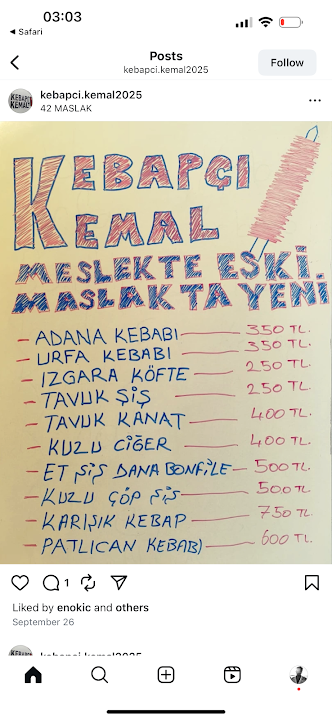 03:03
Safari
Posts
kebapci.kemal2025
Follow
KEBAPÇI KEMAL
kebapci.kemal2025
42 MASLAK
KEBAPÇI
KEMAL
MESLEKTE ESKİ.
MASLAK TA YENİ
– ADANA KEBABI — 350 TL.
– URFA KEBABI — 350 TL.
– IZGARA KÖFTE — 250 TL.
– TAVUK ŞİŞ — 250 TL.
– TAVUK KANAT — 400 TL.
– KUZU CİĞER — 400 TL.
– ET ŞİŞ DANA BONFİLE — 500 TL.
– KUZU ÇÖP ŞİŞ — 500 TL.
– KARIŞIK KEBAP — 750 TL.
– PATLICAN KEBABI — 600 TL.
1
Liked by enokic and others
September 26